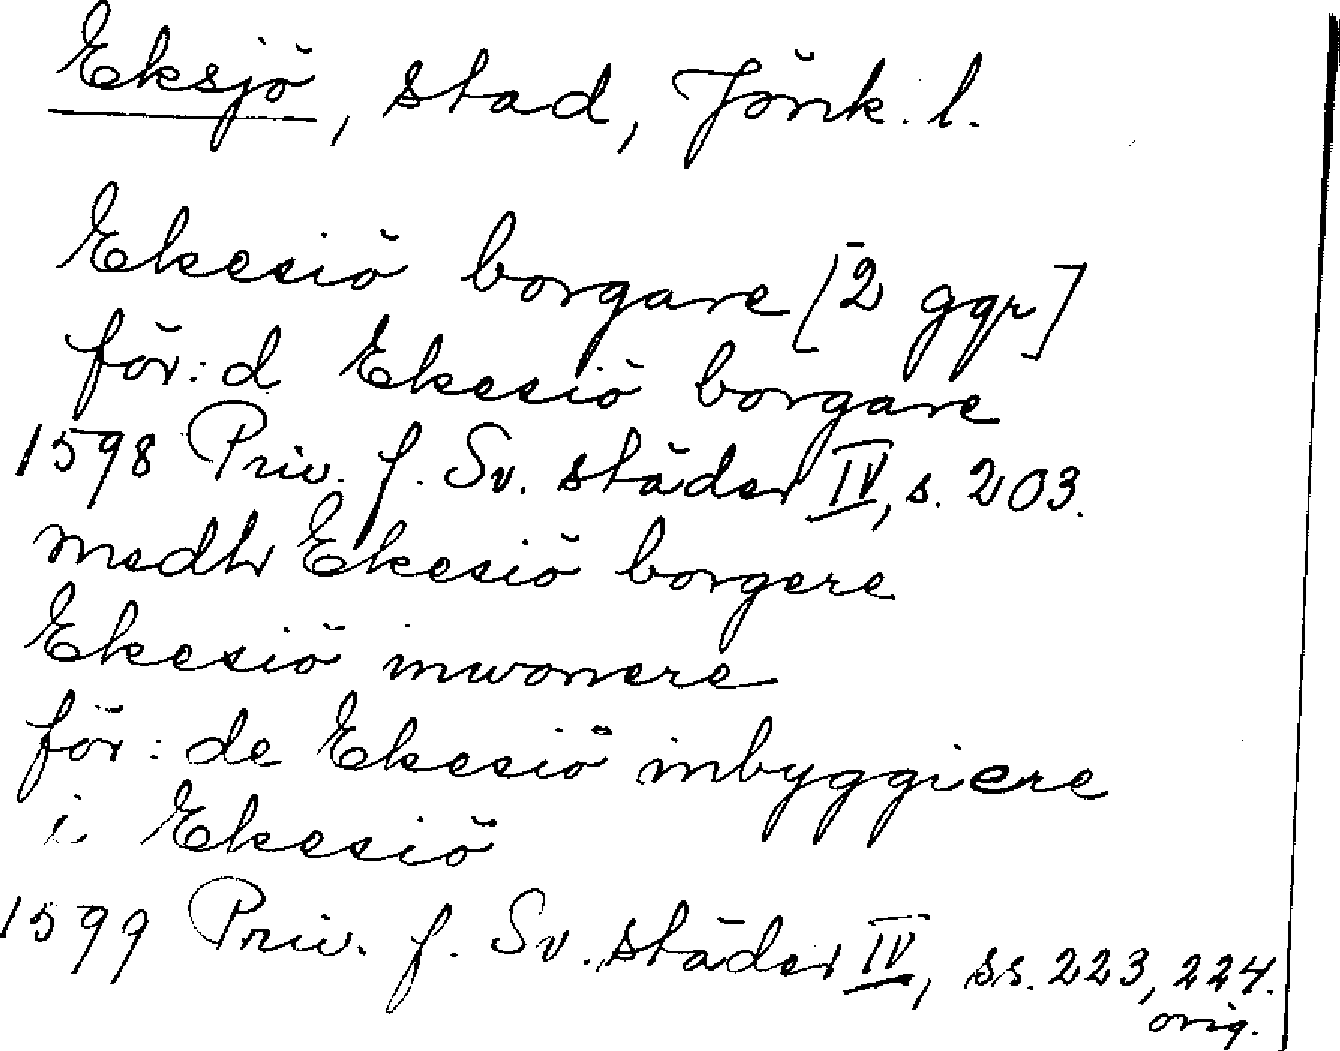 Eksjö, stad, Jönk. l.
Ekesiö borgare [2 ggr]
för: d Ekesiö borgare
1598 Priv. f. Sv. städer IV, s. 203.
medh Ekesiö borgere
Ekesiö inwonere
för: de Ekesiö inbyggiere
i Ekesiö
1599 Priv. f. Sv. städer IV, ss. 223, 224.
orig.